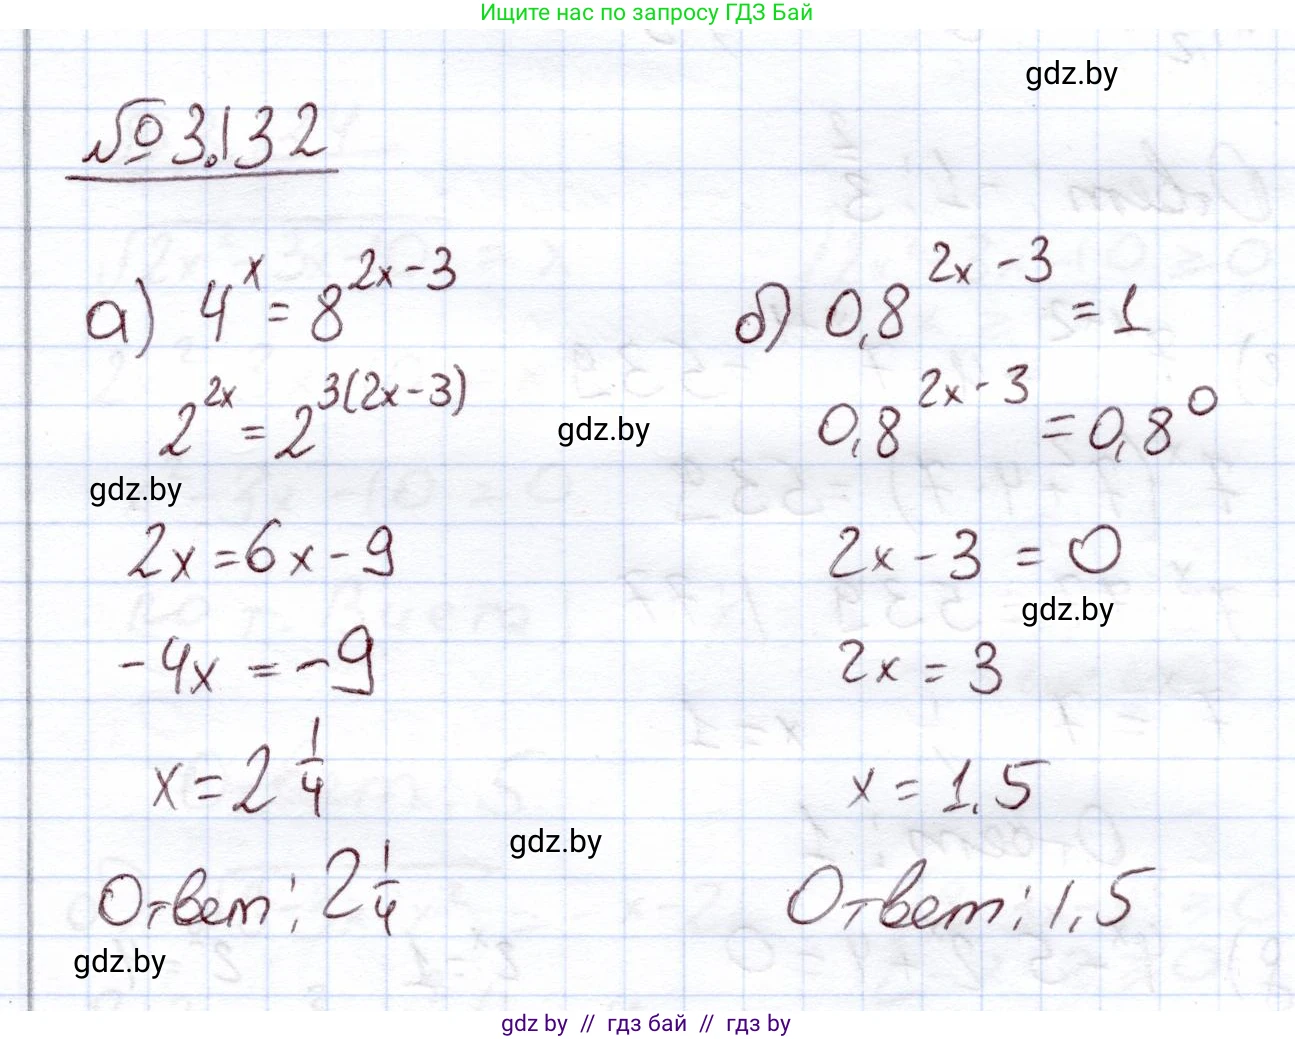 Ищите нас по запросу ГДЗ Бай
gdz.by
№ 3.132
а) 4^x = 8^{2x-3}
2^{2x} = 2^{3(2x-3)}
gdz.by
2x = 6x - 9
-4x = -9
x = 2 1/4
Ответ: 2 1/4
gdz.by
gdz.by
gdz.by
б) 0,8^{2x-3} = 1
0,8^{2x-3} = 0,8^0
2x - 3 = 0
gdz.by
2x = 3
x = 1,5
Ответ: 1,5
gdz.by // гдз бай // гдз by